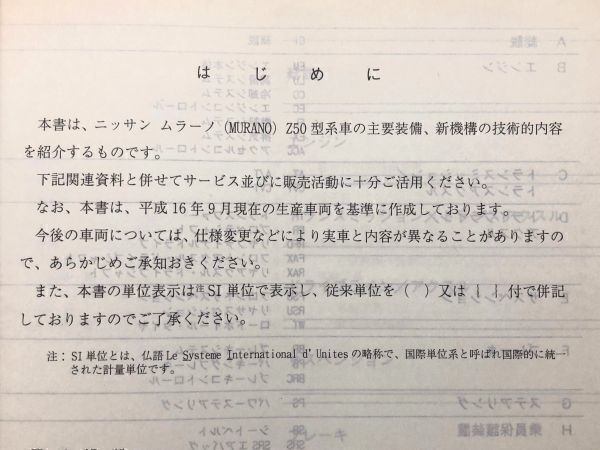 はじめに
本書は、ニッサン ムラーノ (MURANO) Z50 型系車の主要装備、新機構の技術的内容
を紹介するものです。
下記関連資料と併せてサービス並びに販売活動に十分ご活用ください。
なお、本書は、平成 16 年 9 月現在の生産車両を基準に作成しております。
今後の車両については、仕様変更などにより実車と内容が異なることがありますの
で、あらかじめご承知おきください。
また、本書の単位表示は注SI 単位で表示し、従来単位を ( ) 又は { } 付で併記
しておりますのでご了承ください。
注: SI 単位とは、仏語 Le Systeme International d' Unites の略称で、国際単位系と呼ばれ国際的に統一
された計量単位です。